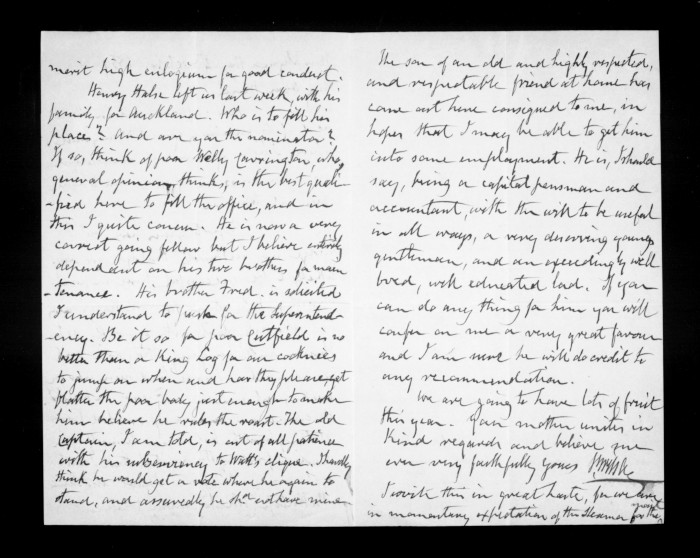 merit high eulogium for good conduct.
Henry Halse left us last week, with his
family, for Auckland. Who is to fill his
place? And are you the nominator?
If so, think of poor Welly Carrington, who,
general opinion, thinks, is the best quali-
-fied here to fill the office, and in
this I quite concur. He is now a very
correct going fellow but I believe entirely
dependent on his two brothers for main
-tenance. His brother Fred. is solicited
I understand to push for the Superintend-
-ency. Be it so for poor Cutfield is no
better than a King Log for our cockneies
to jump on when and how they please, yet
flatter the poor body just enough to make
him believe he rules the roast. The old
Captain, I am told, is out of all patience
with his subserviency to Watt's clique. I hardly
think he would get a vote where he again to
stand, and assuredly he shd not have mine
The son of an old and highly respected,
and respectable friend at home has
come out here consigned to me, in
hopes that I may be able to get him
into some employment. He is, I should
say, being a capital pensman and
accountant, with the will to be useful
in all ways, a very deserving young
gentleman, and an exceedingly well
bred, well educated lad. If you
can do any thing for him you will
confer on me a very great favour
and I am sure he will do credit to
any recommendation.
We are going to have lots of fruit
this year. Your mother unites in
kind regards and believe me
ever very faithfully yours
I write this in great haste, for we are
in momentary expectation of the Steamer from the